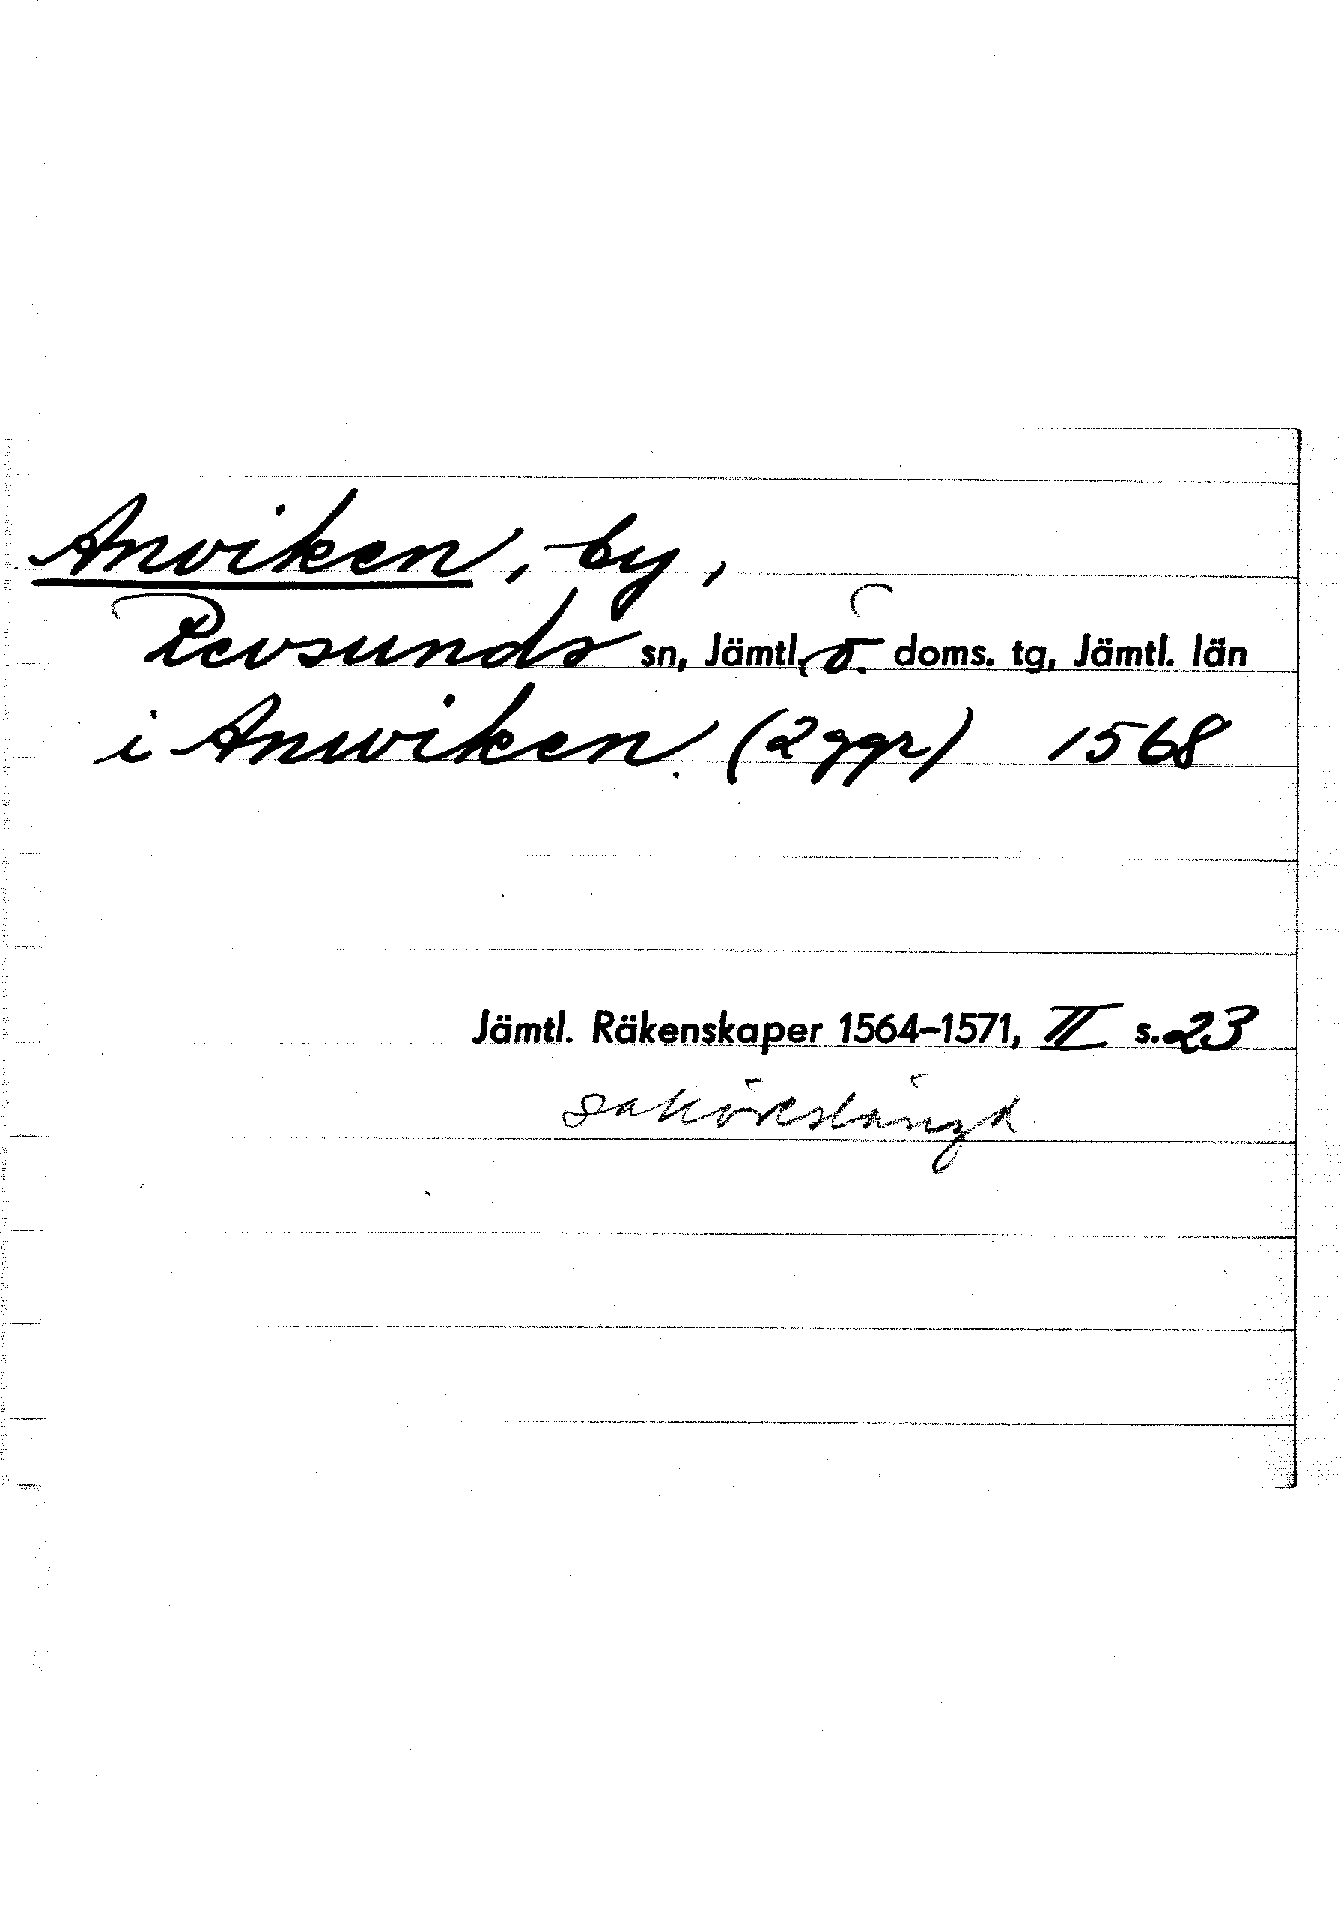 Anviken, by,
Revsunds sn, Jämtl. ö. doms. tg, Jämtl. län
i Anwiken (2 ggr) 1568
Jämtl. Räkenskaper 1564–1571, II s. 23
saköreslängd